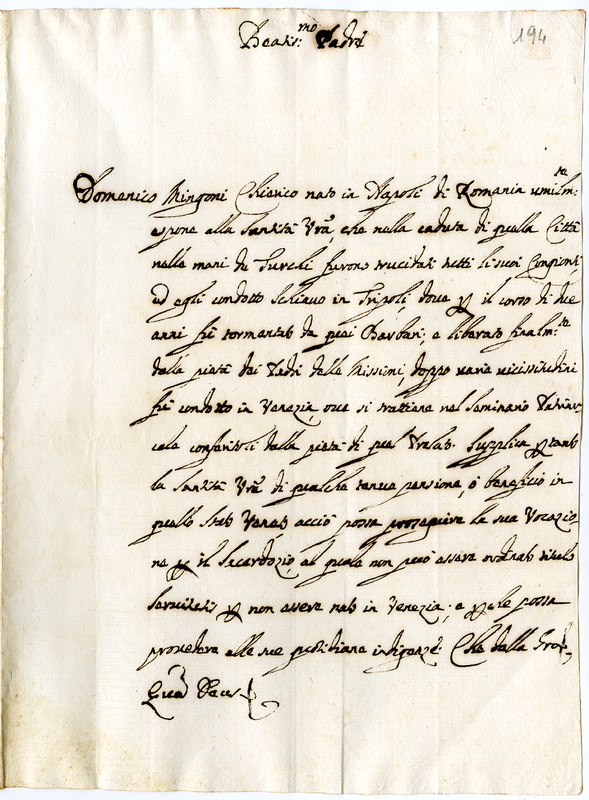 Beatis:mo Padre
194
Domenico Mingoni Chierico nato in Napoli di Romania umilm:te
espone alla Santità Vrã, che nella caduta di quella Città
nelle mani de Turchi furono trucidati tutti li suoi Congionti
ed egli condotto Schiavo in Tripoli, dove p il corso di due
anni fù tormentato da quei Barbari; e liberato finalm:te
dalla pietà dei Padri delle Missioni, doppo varie vicissitudini
fù condotto in Venezia, ove si trattiene nel Seminario
dalla pietà di quel Prelato. Supplica ptanto
la Santità Vrã di qualche tenue pensione, ò beneficio in
quello Stato Veneto acciò possa proseguire la sua Vocazio
ne p il Sacerdozio, al quale non può essere ordinato titulo
servitutis p non essere nato in Venezia; e pche possa
provedere alle sue quotidiane indigenze. Che della Gra
Quã Deus